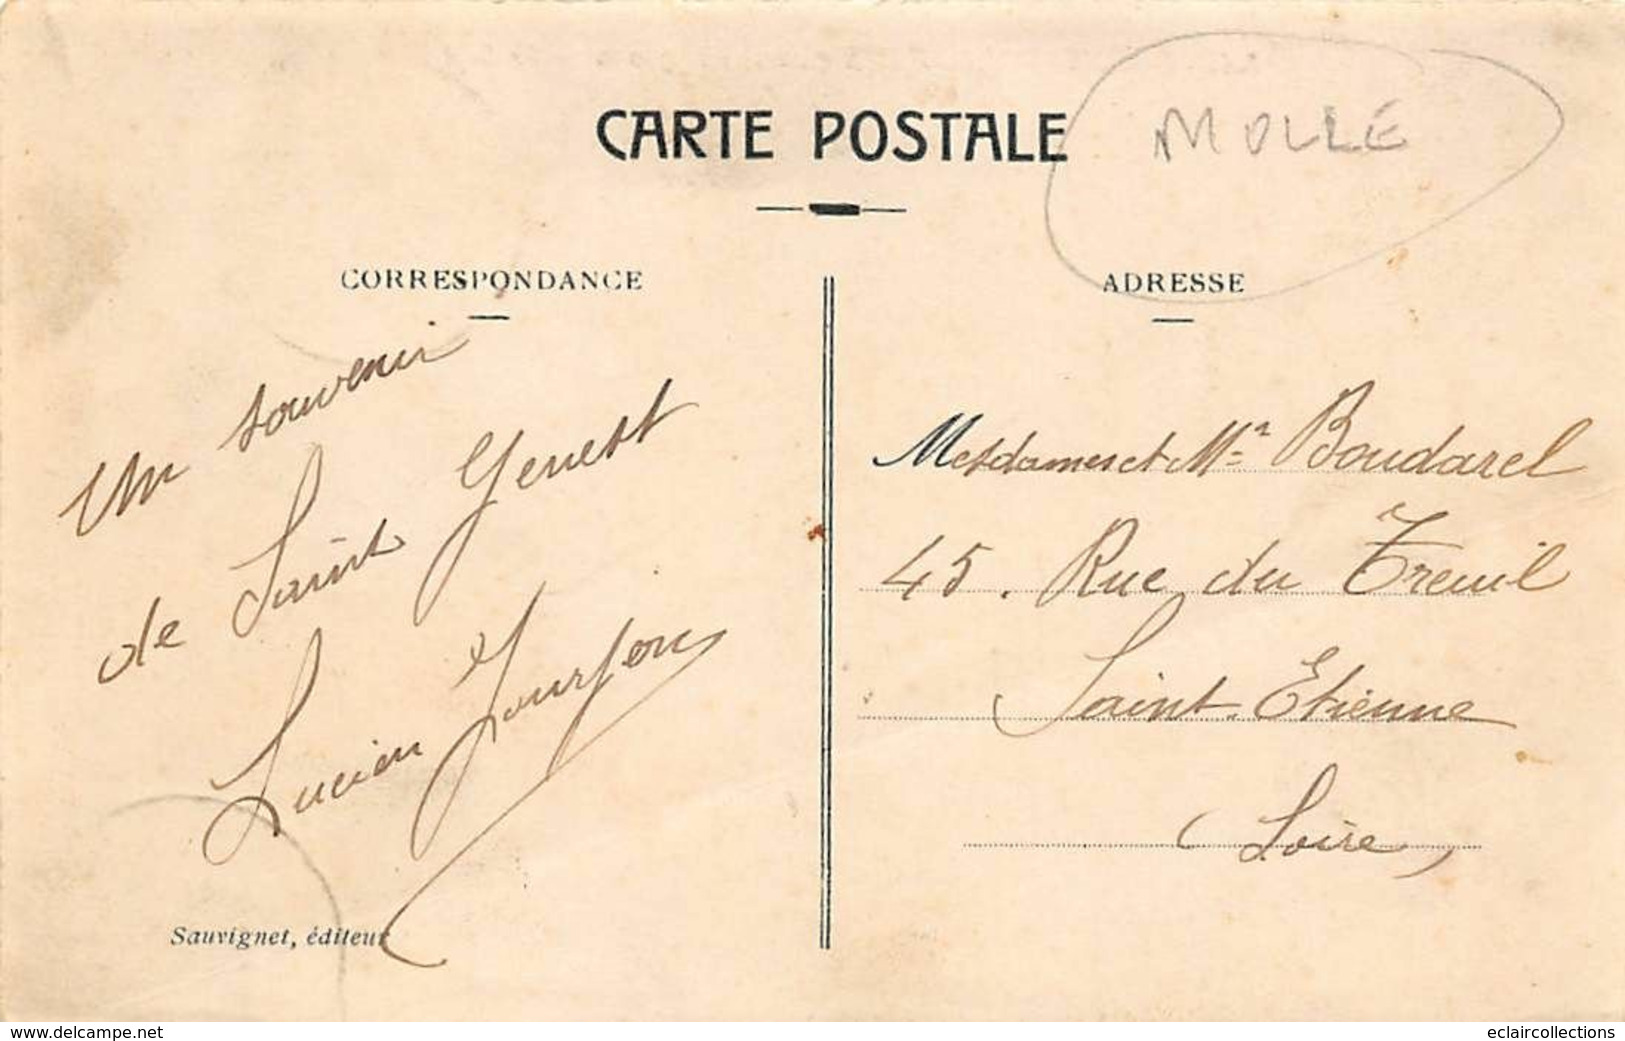 CARTE POSTALE
MOLLE
CORRESPONDANCE
Un souvenir
de Saint Genest
Lucien
Sauvignet, éditeur
ADRESSE
Mesdames et Mr Boudarel
45. Rue du Treuil
Saint-Etienne
(Loire)
www.delcampe.net
eclaircollections